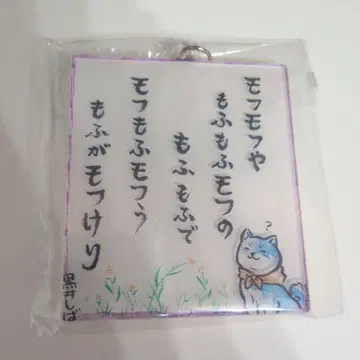 モフモフや
もふもふモフの
もふもふで
モフもふモフう
もふがモフけり
?
黒井しば